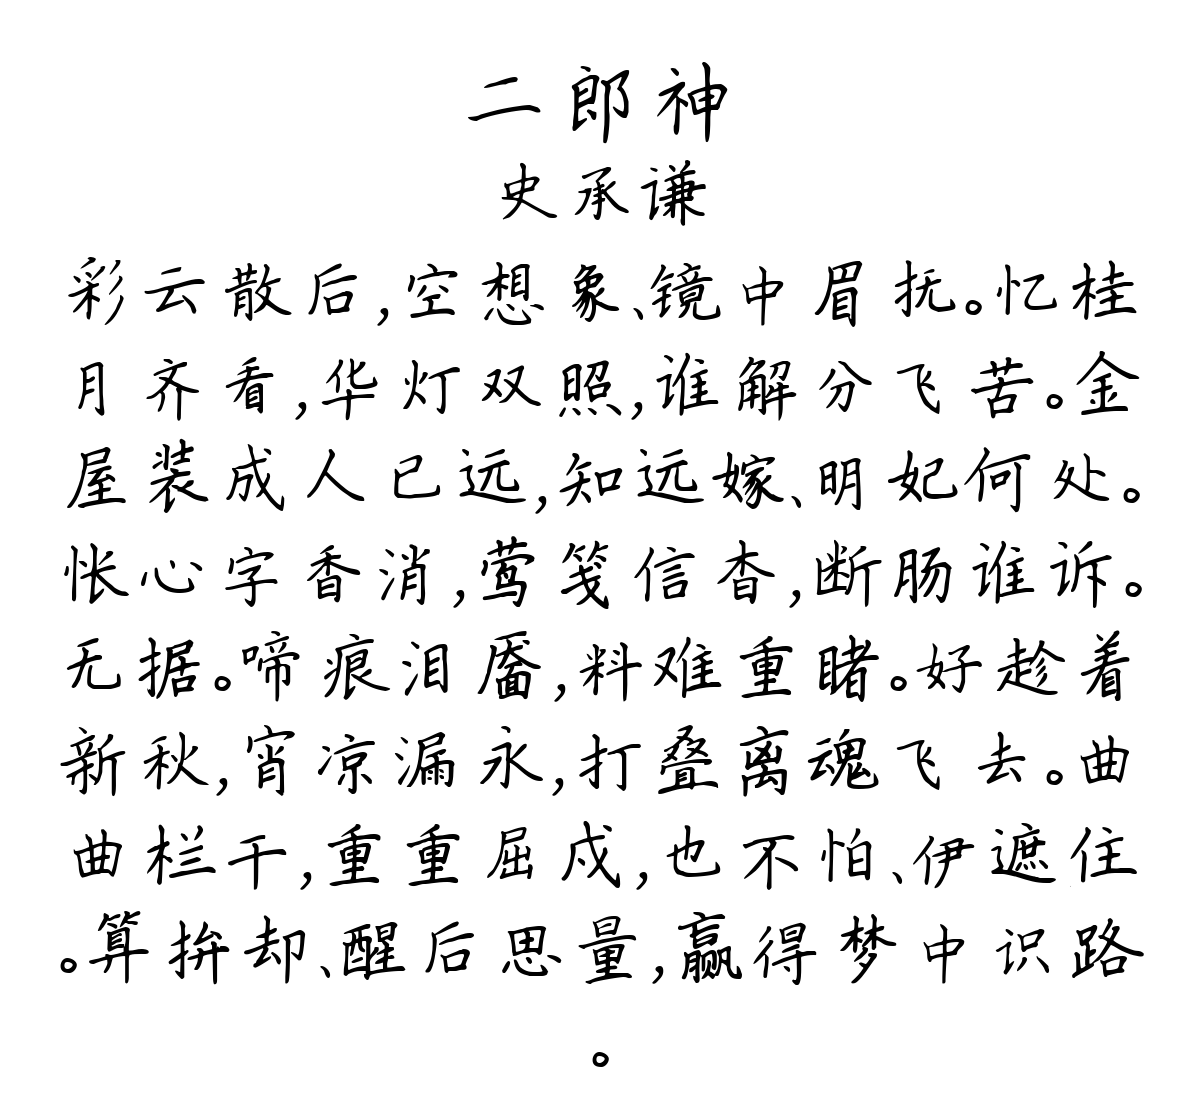 二郎神
史承谦
彩云散后,空想象、镜中眉抚。忆桂
月齐看,华灯双照,谁解分飞苦。金
屋装成人已远,知远嫁、明妃何处。
怅心字香消,莺笺信杳,断肠谁诉。
无据。啼痕泪靥,料难重睹。好趁着
新秋,宵凉漏永,打叠离魂飞去。曲
曲栏干,重重屈戍,也不怕、伊遮住
。算拚却、醒后思量,赢得梦中识路
。